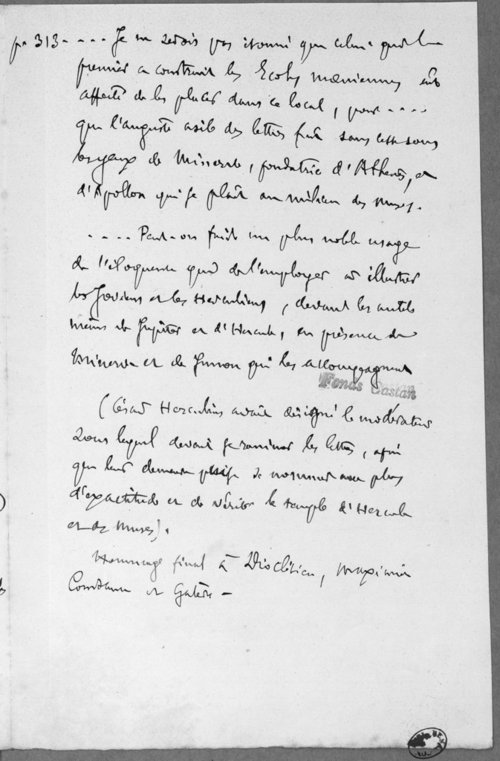 p. 313 - .... Je ne serais pas étonné que celui qui le
premier a construit les Ecoles mæniennes eût
affecté de les placer dans ce local, pour ....
que l'auguste asile des lettres fût sans cesse sous
les yeux de Minerve, fondatrice d'Athènes, et
d'Apollon qui se plaît au milieu des Muses.
.... Peut-on faire un plus noble usage
de l'éloquence que de l'employer à illustrer
les Joviens et les Herculiens, devant les autels
mêmes de Jupiter et d'Hercule, en présence de
Minerve et de Junon qui les accompagnent
Fonds Castan
(César Herculius avait désigné le modérateur
sous lequel devait se ranimer les lettres, afin
que leur demeure puisse se nommer avec plus
d'exactitude et de vérité le temple d'Hercule
et des Muses).
Hommage final à Dioclétien, Maximien
Constance et Galère -